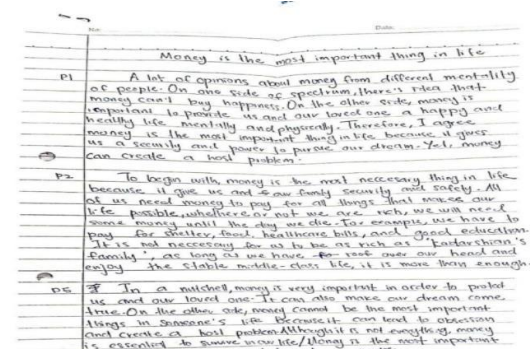 No:
Date:
Money is the most important thing in life
P1 A lot of opinions about money from different mentality
of people. On one side of spectrum, there's idea that
money can't buy happiness. On the other side, money is
important to provide us and our loved one a happy and
healthy life mentally and physically. Therefore, I agree
money is the most important thing in life because it gives
us a security and power to pursue our dream. Yet, money
can create a host problem.
P2 To begin with, money is the most neccesary thing in life
because it give us and our family security and safety. All
of us need money to pay for all things that makes our
life possible, whethere or not we are rich, we will need
some money until the day we die. For example, we have to
pay for shelter, food, healthcare bills, and good education.
It is not neccesary for us to be as rich as "kadarshian's
family", as long as we have roof over our head and
enjoy the stable middle-class life, it is more than enough.
P5 In a nutshell, money is very important in order to protect
us and our loved one. It can also make our dream come
true. On the other side, money cannot be the most important
things in someone's life because it can lead to obsession
and create a host problem. Although it is not everything, money
is essential to survive in our life / Money is the most important